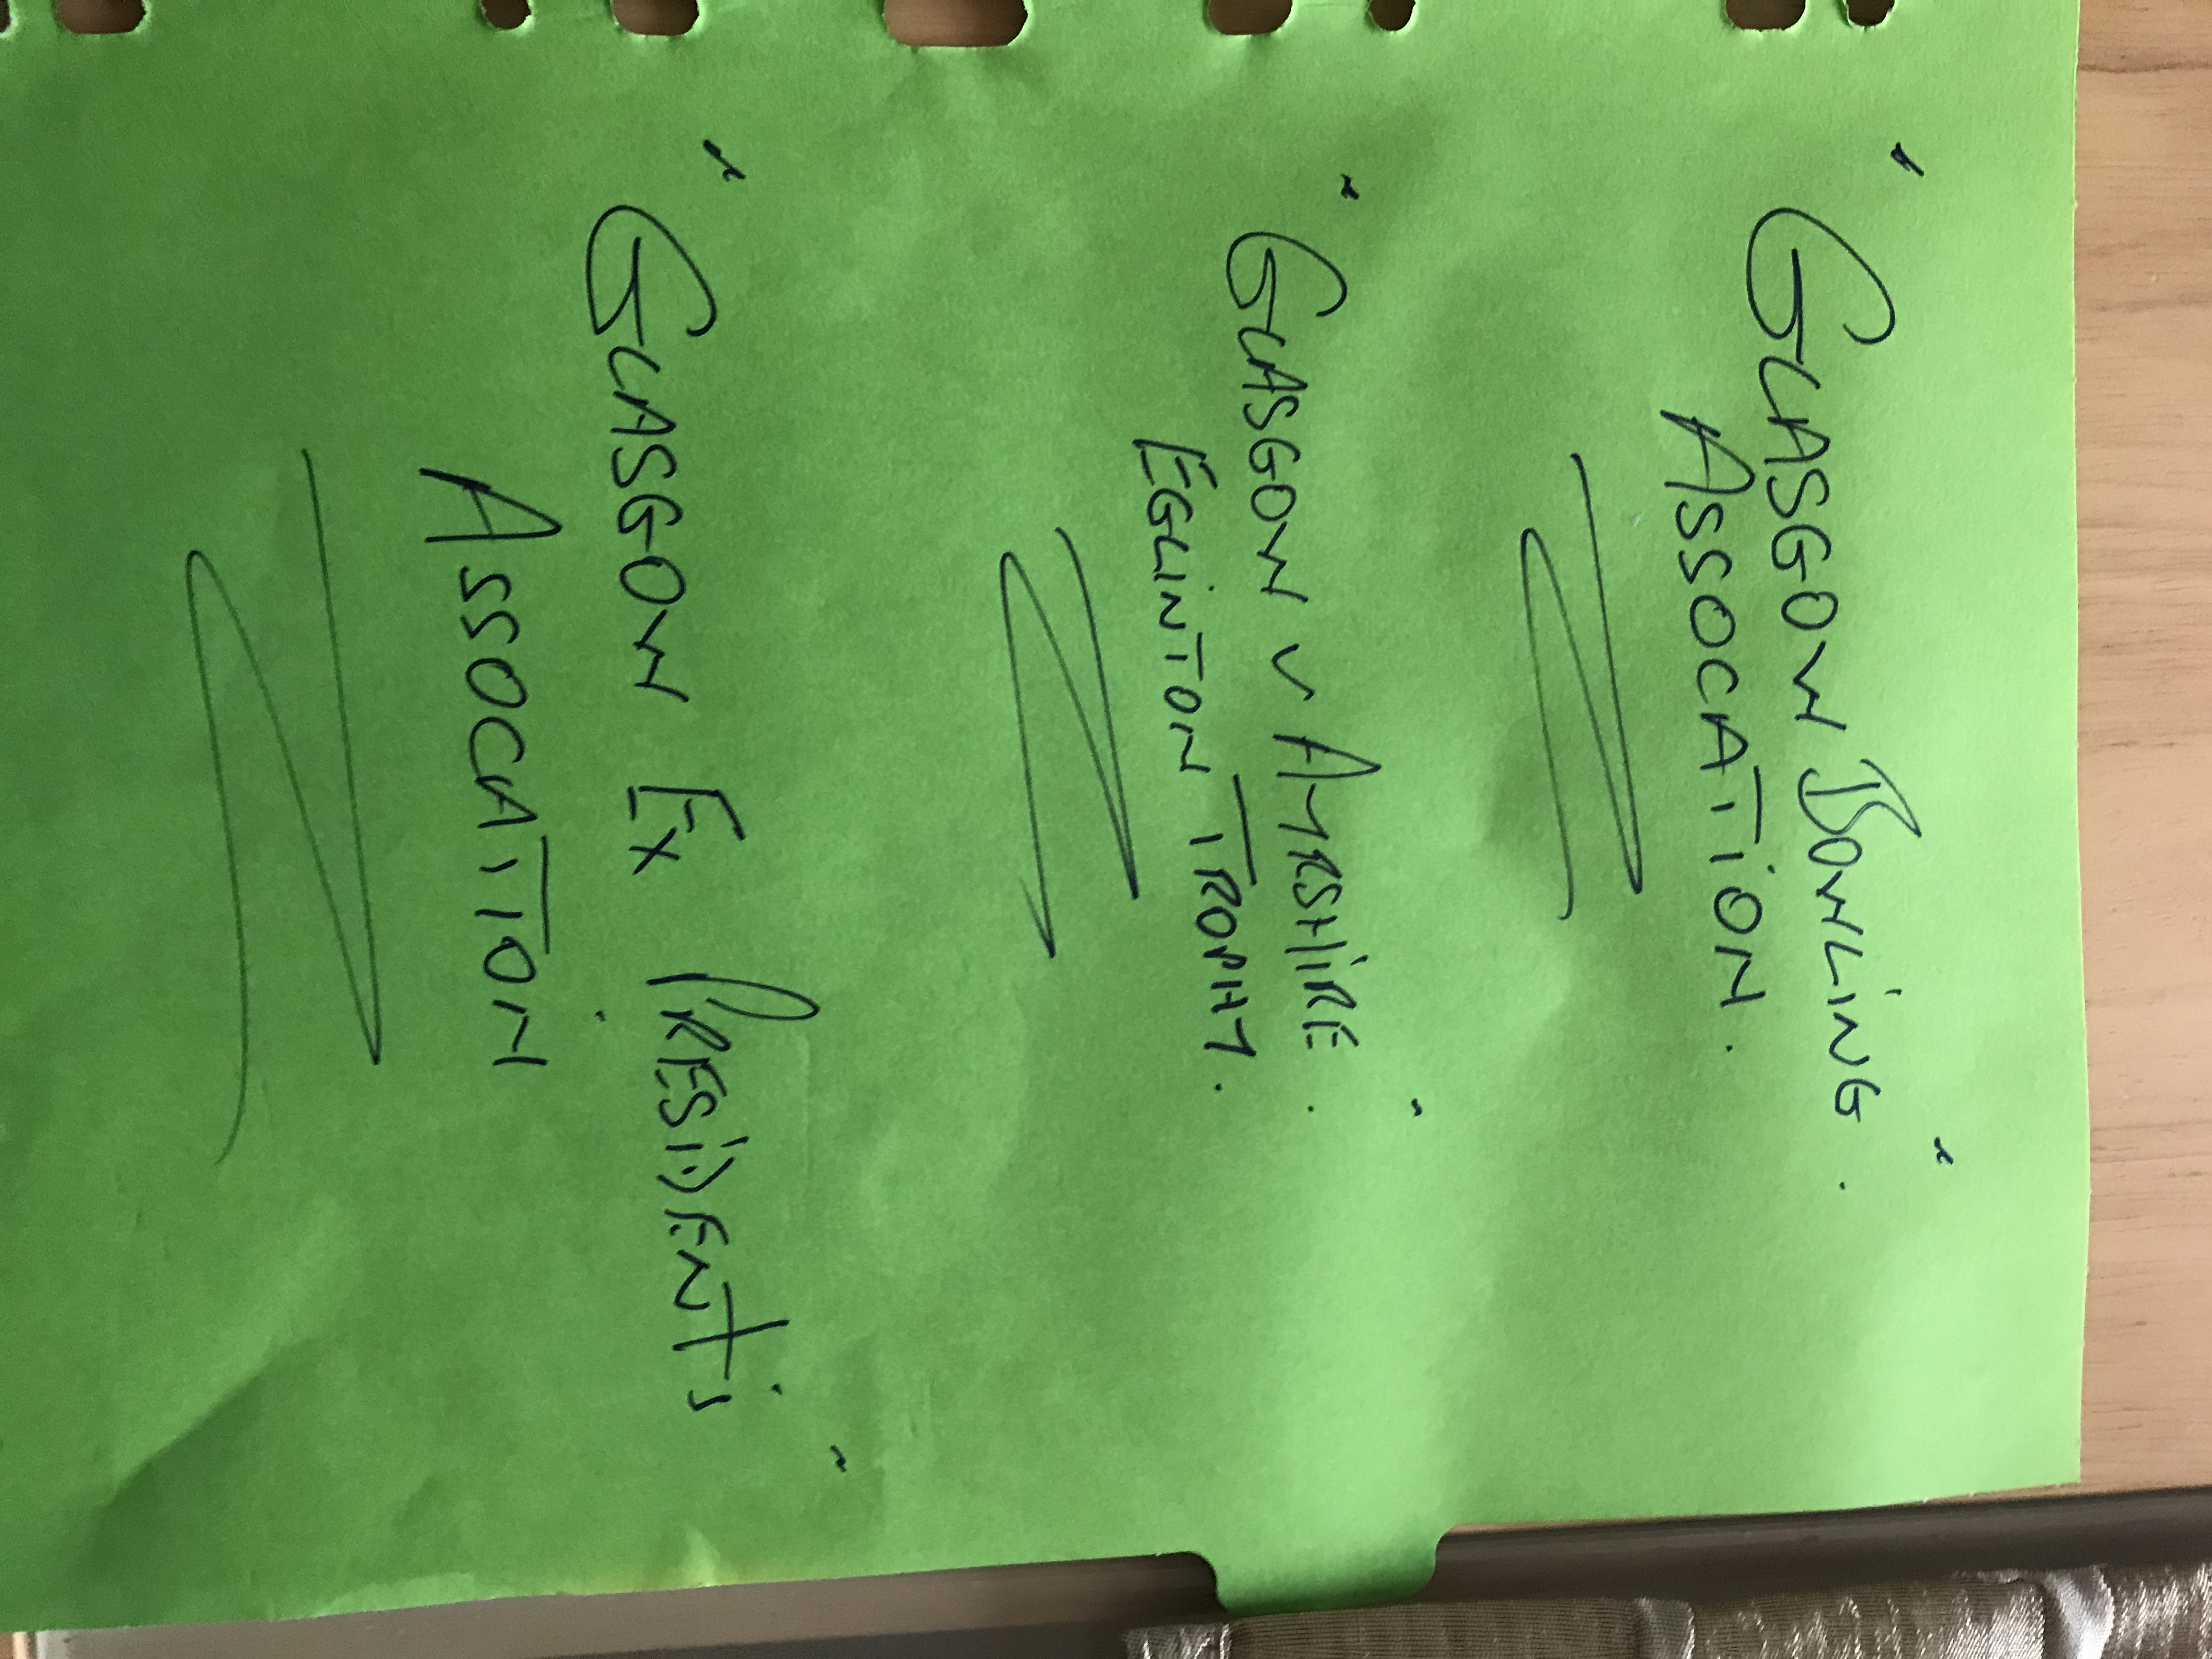 "GLASGOW BOWLING."
ASSOCATION.
"GLASGOW V AYRSHIRE."
EGLINTON TROPHY.
"GLASGOW EX PRESIDENT'S"
ASSOCATION